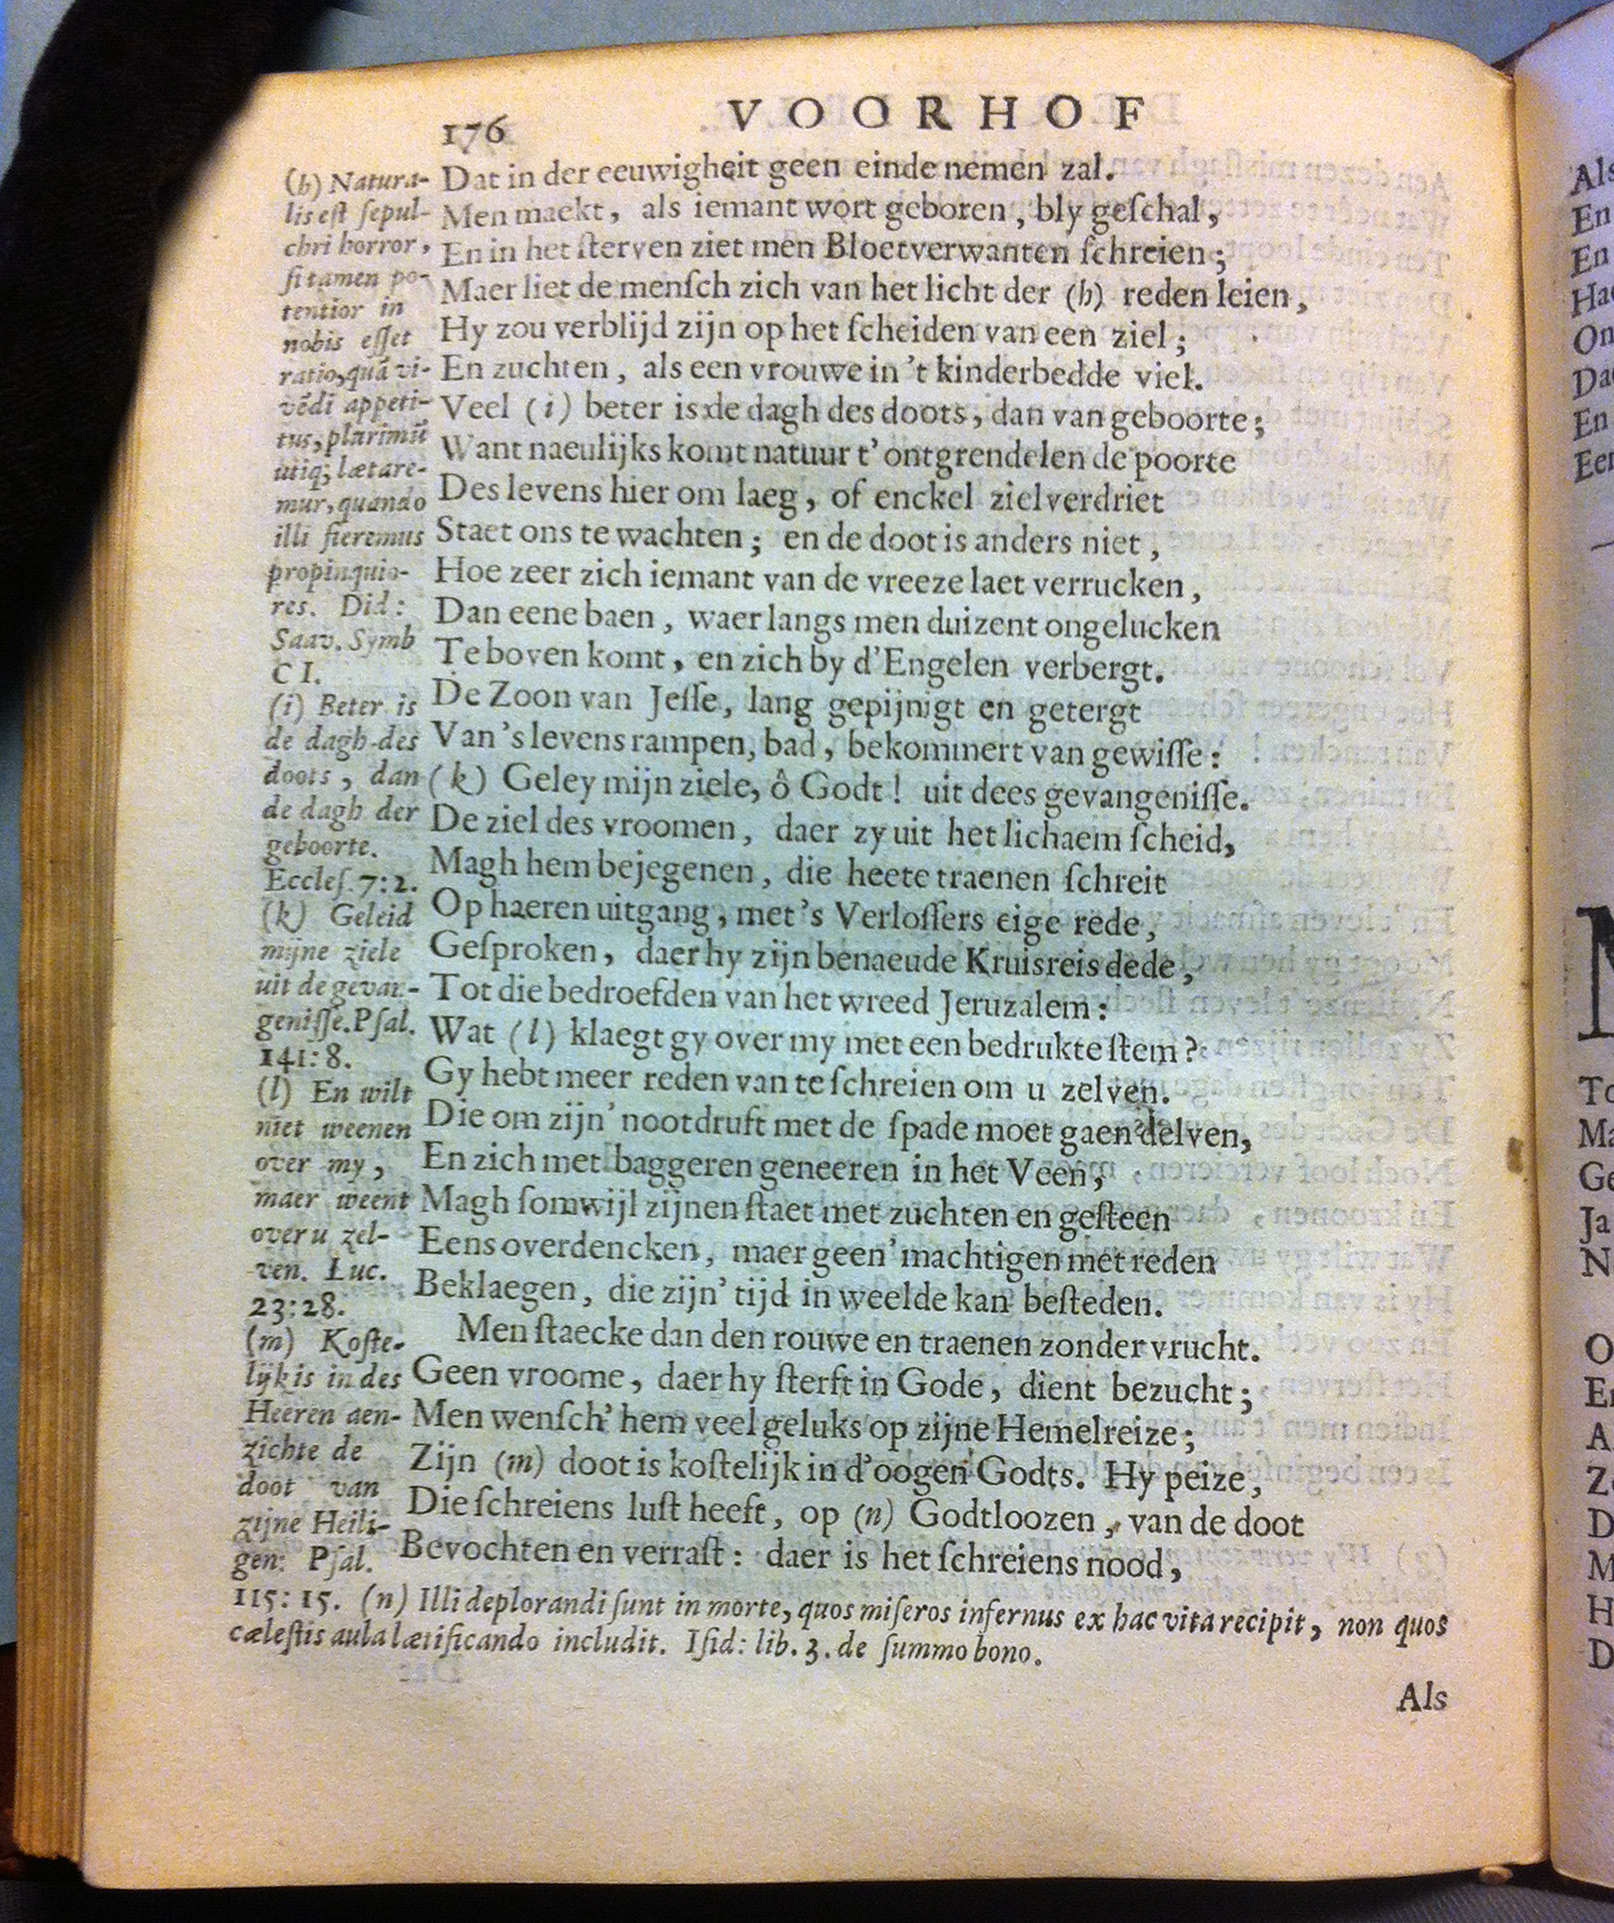 176 VOORHOF
Dat in der eeuwigheit geen einde nemen zal.
Men maekt, als iemant wort geboren, bly geſchal,
En in het ſterven ziet men Bloetverwanten ſchreien;
Maer liet de menſch zich van het licht der (h) reden leien,
Hy zou verblijd zijn op het ſcheiden van een ziel;
En zuchten, als een vrouwe in 't kinderbedde viel.
Veel (i) beter is de dagh des doots, dan van geboorte;
Want naeulijks komt natuur t' ontgrendelen de poorte
Des levens hier om laeg, of enckel zielverdriet
Staet ons te wachten; en de doot is anders niet,
Hoe zeer zich iemant van de vreeze laet verrucken,
Dan eene baen, waer langs men duizent ongelucken
Te boven komt, en zich by d'Engelen verbergt.
De Zoon van Jeſſe, lang gepijnigt en getergt
Van 's levens rampen, bad, bekommert van gewiſſe:
(k) Geley mijn ziele, ô Godt! uit dees gevangeniſſe.
De ziel des vroomen, daer zy uit het lichaem ſcheid,
Magh hem bejegenen, die heete traenen ſchreit
Op haeren uitgang, met 's Verloſſers eige rede,
Geſproken, daer hy zijn benaeude Kruisreis dede,
Tot die bedroefden van het wreed Jeruzalem:
Wat (l) klaegt gy over my met een bedrukte ſtem?
Gy hebt meer reden van te ſchreien om u zelven.
Die om zijn' nootdruft met de ſpade moet gaen delven,
En zich met baggeren geneeren in het Veen,
Magh ſomwijl zijnen ſtaet met zuchten en geſteen
Eens overdencken, maer geen' machtigen met reden
Beklaegen, die zijn' tijd in weelde kan beſteden.
Men ſtaecke dan den rouwe en traenen zonder vrucht.
Geen vroome, daer hy ſterft in Gode, dient bezucht;
Men wenſch' hem veel geluks op zijne Hemelreize;
Zijn (m) doot is koſtelijk in d'oogen Godts. Hy peize,
Die ſchreiens luſt heeft, op (n) Godtloozen, van de doot
Bevochten en verraſt: daer is het ſchreiens nood,
(h) Natura-
lis eſt ſepul-
chri horror,
ſi tamen po-
tentior in
nobis eſſet
ratio, quã vi-
vẽdi appeti-
tus, plurimũ
utiq; lætare-
mur, quando
illi fieremus
propinquio-
res. Did:
Saav. Symb
CI.
(i) Beter is
de dagh des
doots, dan
de dagh der
geboorte.
Eccleſ. 7:2.
(k) Geleid
mijne ziele
uit de gevan-
geniſſe. Pſal.
141:8.
(l) En wilt
niet weenen
over my,
maer weent
over u zel-
ven. Luc.
23:28.
(m) Koſte-
lijk is in des
Heeren aen-
zichte de
doot van
zijne Heili-
gen: Pſal.
115:15. (n) Illi deplorandi ſunt in morte, quos miſeros infernus ex hac vita recipit, non quos
cæleſtis aula lætificando includit. Iſid: lib. 3. de ſummo bono.
Als
Als
En
En
On
En